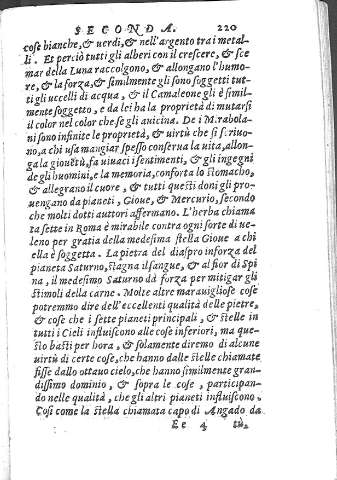 SECONDA. 220
cose bianche, & uerdi, & nell'argento tra i metal-
li. Et perciò tutti gli alberi con il crescere, & sce
mar della Luna raccolgono, & allongano l'humo-
re, & la forza, & similmente gli sono soggetti tut-
ti gli uccelli di acqua, & il Camaleone gli è simil-
mente soggetto, & da lei ha la proprietà di mutarsi
il color nel color che se gli auicina. De i Mirabola-
ni sono infinite le proprietà, & uirtù che si scriuo-
no, a chi usa mangiar spesso conserua la uita, allon-
ga la giouẽtù, fa uiuaci i sentimenti, & gli ingegni
de gli huomini, e la memoria, conforta lo stomacho,
& allegrano il cuore, & tutti questi doni gli pro-
uengano da pianeti, Gioue, & Mercurio, secondo
che molti dotti auttori affermano. L'herba chiama
ta sette in Roma è mirabile contra ogni sorte di ue-
leno per gratia della medesima stella Gioue a chi
ella è soggetta. La pietra del diaspro in forza del
pianeta Saturno, stagna il sangue, & al fior di Spi
na, il medesimo Saturno dà forza per mitigar gli
stimoli della carne. Molte altre marauigliose cose
potremmo dire dell'eccellenti qualità delle pietre,
& cose che i sette pianeti principali, & stelle in
tutti i Cieli influiscono alle cose inferiori, ma que-
sto basti per hora, & solamente diremo di alcune
uirtù di certe cose, che hanno dalle stelle chiamate
fisse dallo ottauo cielo, che hanno similmente gran-
dissimo dominio, & sopra le cose, participan-
do nelle qualità, che gli altri pianeti influiscono.
Cosi come la stella chiamata capo di Angado da
Ee 4 tù.